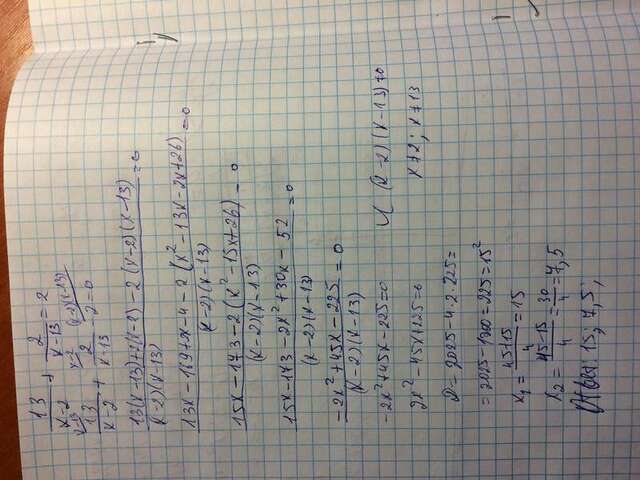 13/(x-2) + 2/(x-13) = 2
13/(x-2) + 2/(x-13) - 2 = 0
(13(x-13)+2(x-2)-2(x-2)(x-13))/((x-2)(x-13)) = 0
(13x-169+2x-4-2(x²-13x-2x+26))/((x-2)(x-13)) = 0
(15x-173-2(x²-15x+26))/((x-2)(x-13)) = 0
(15x-173-2x²+30x-52)/((x-2)(x-13)) = 0
(-2x²+45x-225)/((x-2)(x-13)) = 0
-2x²+45x-225=0 и (x-2)(x-13)≠0
2x²-45x+225=0 x≠2; x≠13
D=2025-4·2·225=
=2025-1800=225=15²
x₁=(45+15)/4=15
x₂=(45-15)/4=30/4=7,5
Ответ: 15; 7,5;